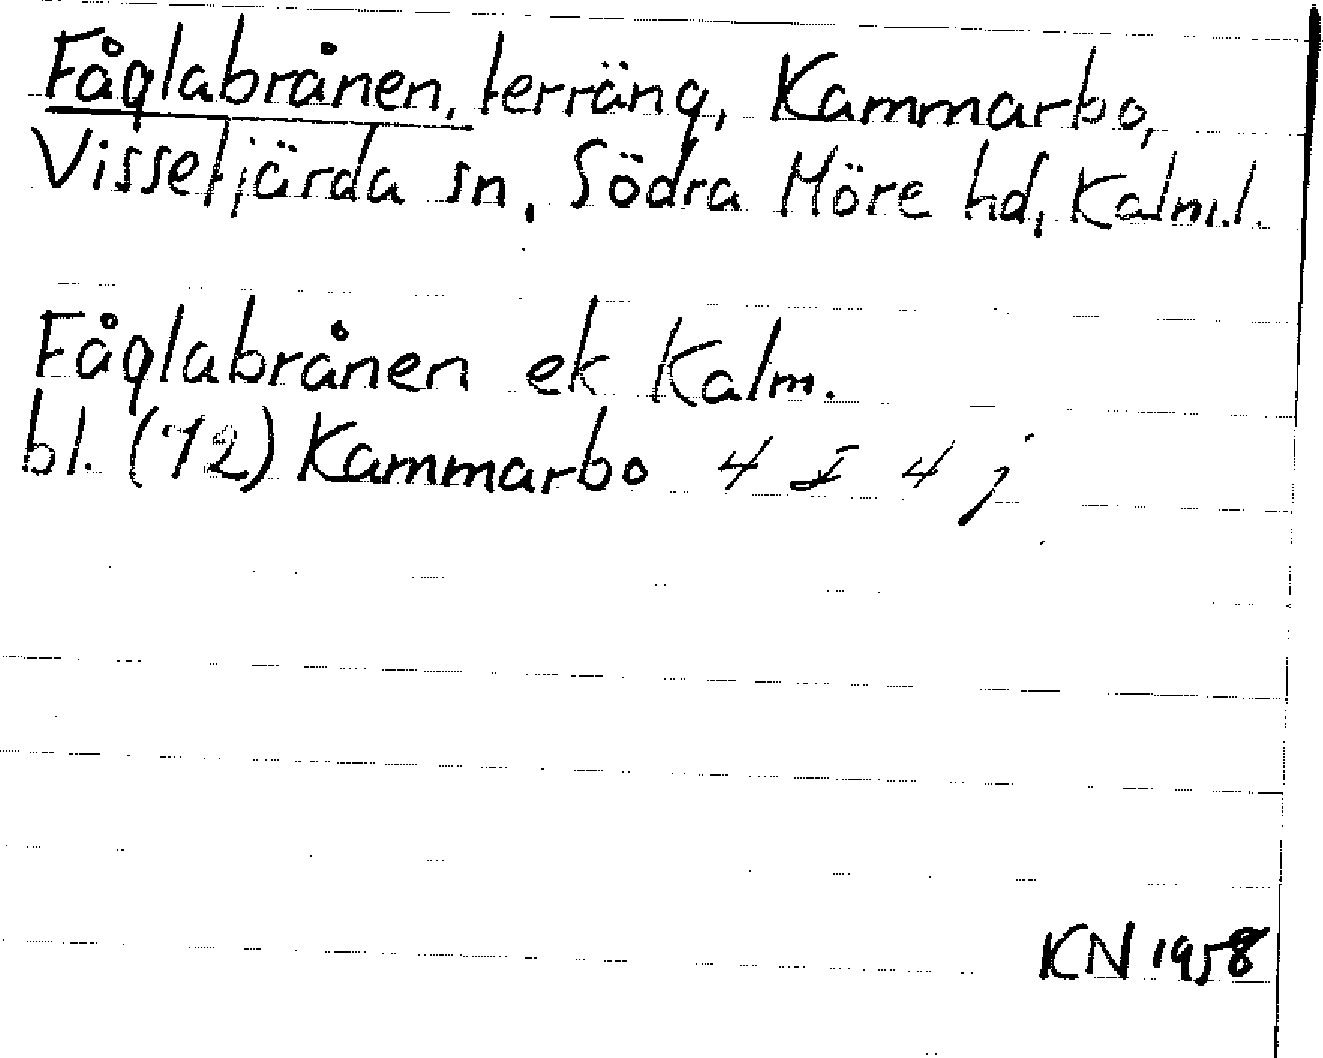 Fåglabrånen, terräng, Kammarbo,
Vissefjärda sn, Södra Möre hd, Kalm.l.
Fåglabrånen ek Kalm.
bl. (12) Kammarbo 4 I 4 j
KN 1958